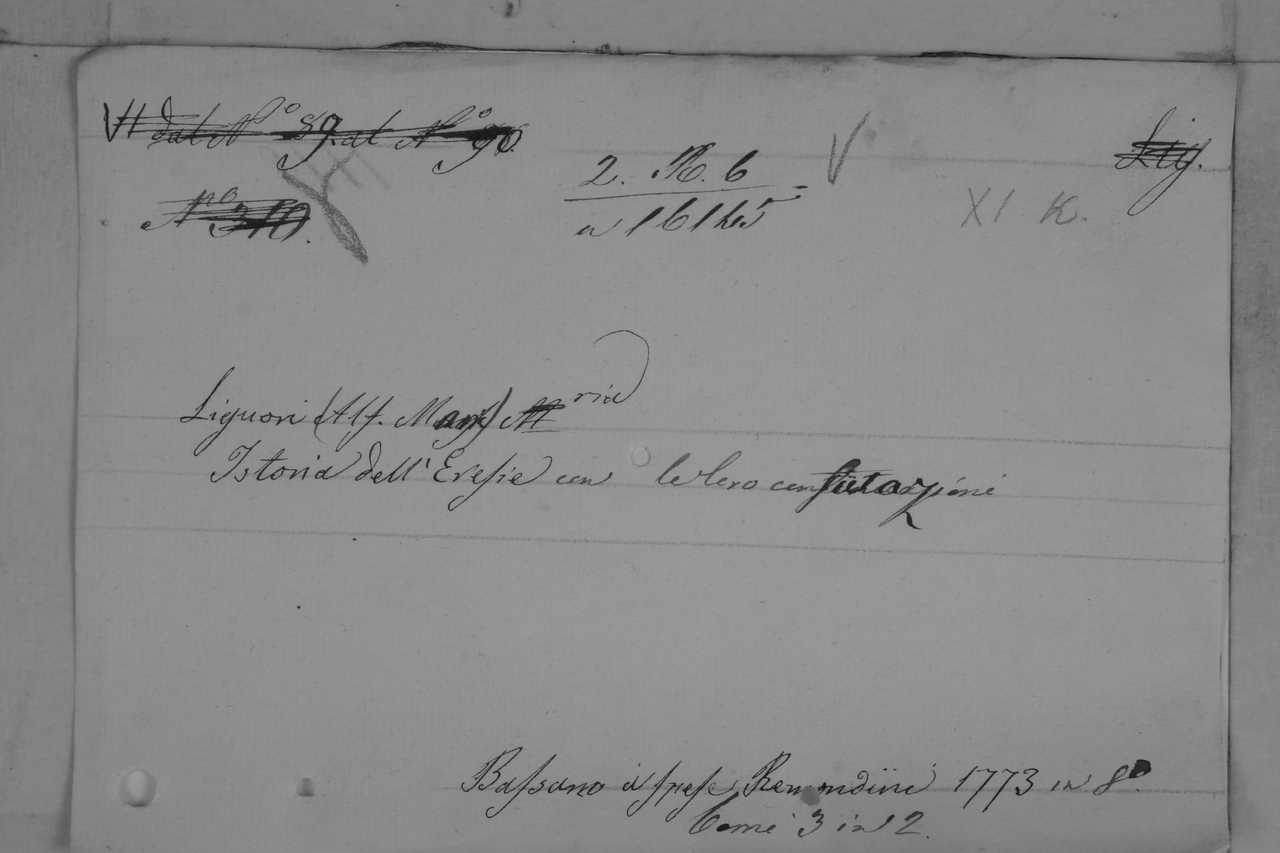 VII dal Nº 89. al Nº 90.
V
Lig.
2. K. 6
Nº 310.
XI K.
a 16 1
Liguori (Alf. Maria)
Istoria dell' Eresie con le loro confutazioni
Bassano a spese Remondini 1773 in 8º
Tomi 3 in 2.